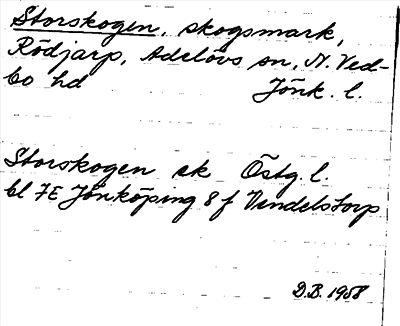 Storskogen, skogsmark,
Rödjarp, Adelövs sn, N. Ved-
bo hd Jönk. l.
Storskogen ek Östg. l.
bl 7E Jönköping 8 f Vendelstorp
D.B. 1958